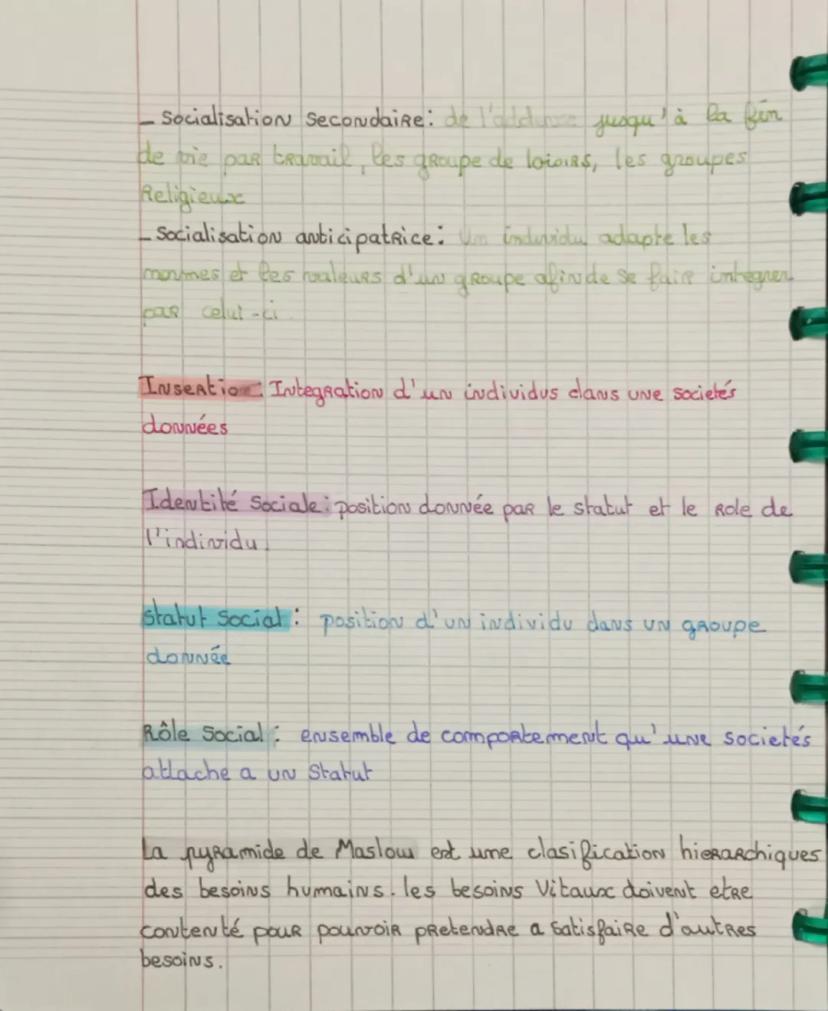 - Socialisation Secondaire: de jusqu'à la fin
de vie par travail, les groupe de loisirs, les groupes
Religieux
- Socialisation anticipatrice: Un individu adapte les
normes et les valeurs d'un groupe afin de se faire integrer
par celui-ci
Insertion: Integration d'un individus dans une societés
données
Identité Sociale: position donnée par le statut et le Role de
l'individu.
Statut Social: position d'un individu dans un groupe
donnée
Rôle Social: ensemble de comportement qu'une societés
attache a un Statut
La pyramide de Maslow est une clasification hierarchiques
des besoins humains. les besoins Vitaux doivent etre
contenté pour pouvoir pretendre a satisfaire d'autres
besoins.